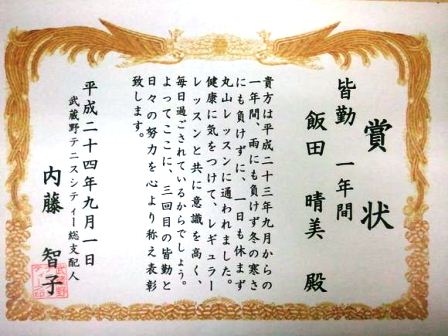 賞状
皆勤 一年間
飯田 晴美 殿
貴方は平成二十三年九月からの
一年間、雨にも負けず冬の寒さ
にも負けずに、一日も休まず
丸山レッスンに通われました。
健康に気をつけて、レギュラー
レッスンと共に意識を高く、
毎日過ごされているからでしょう。
よってここに、三回目の皆勤と
日々の努力を心より称え表彰
致します。
平成二十四年九月一日
武蔵野テニスシティー総支配人
内藤 智子